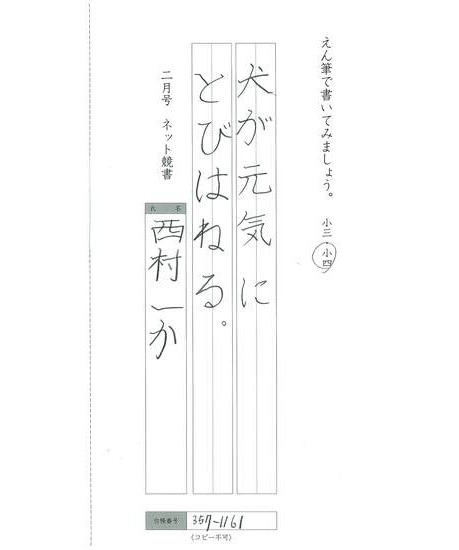 えん筆で書いてみましょう。 小三・小四
犬が元気に
とびはねる。
二月号 ネット競書
氏名
西村一か
台帳番号 357-1161
(コピー不可)